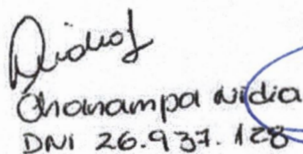 Chanampa Nidia
DNI 26.937.128